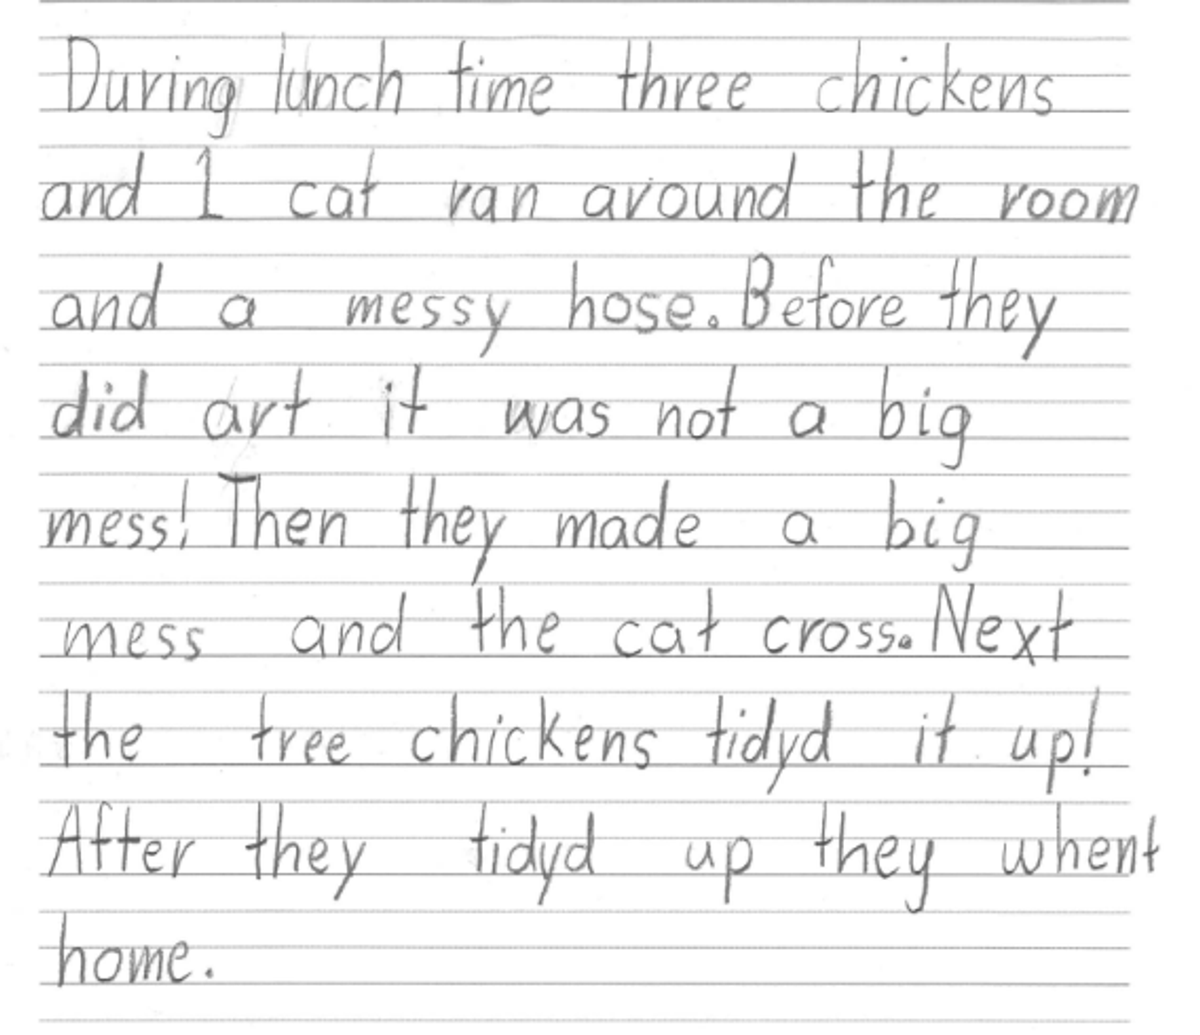 During lunch time three chickens
and 1 cat ran around the room
and a messy hose. Before they
did art it was not a big
mess! Then they made a big
mess and the cat cross. Next
the tree chickens tidyd it up!
After they tidyd up they whent
home.